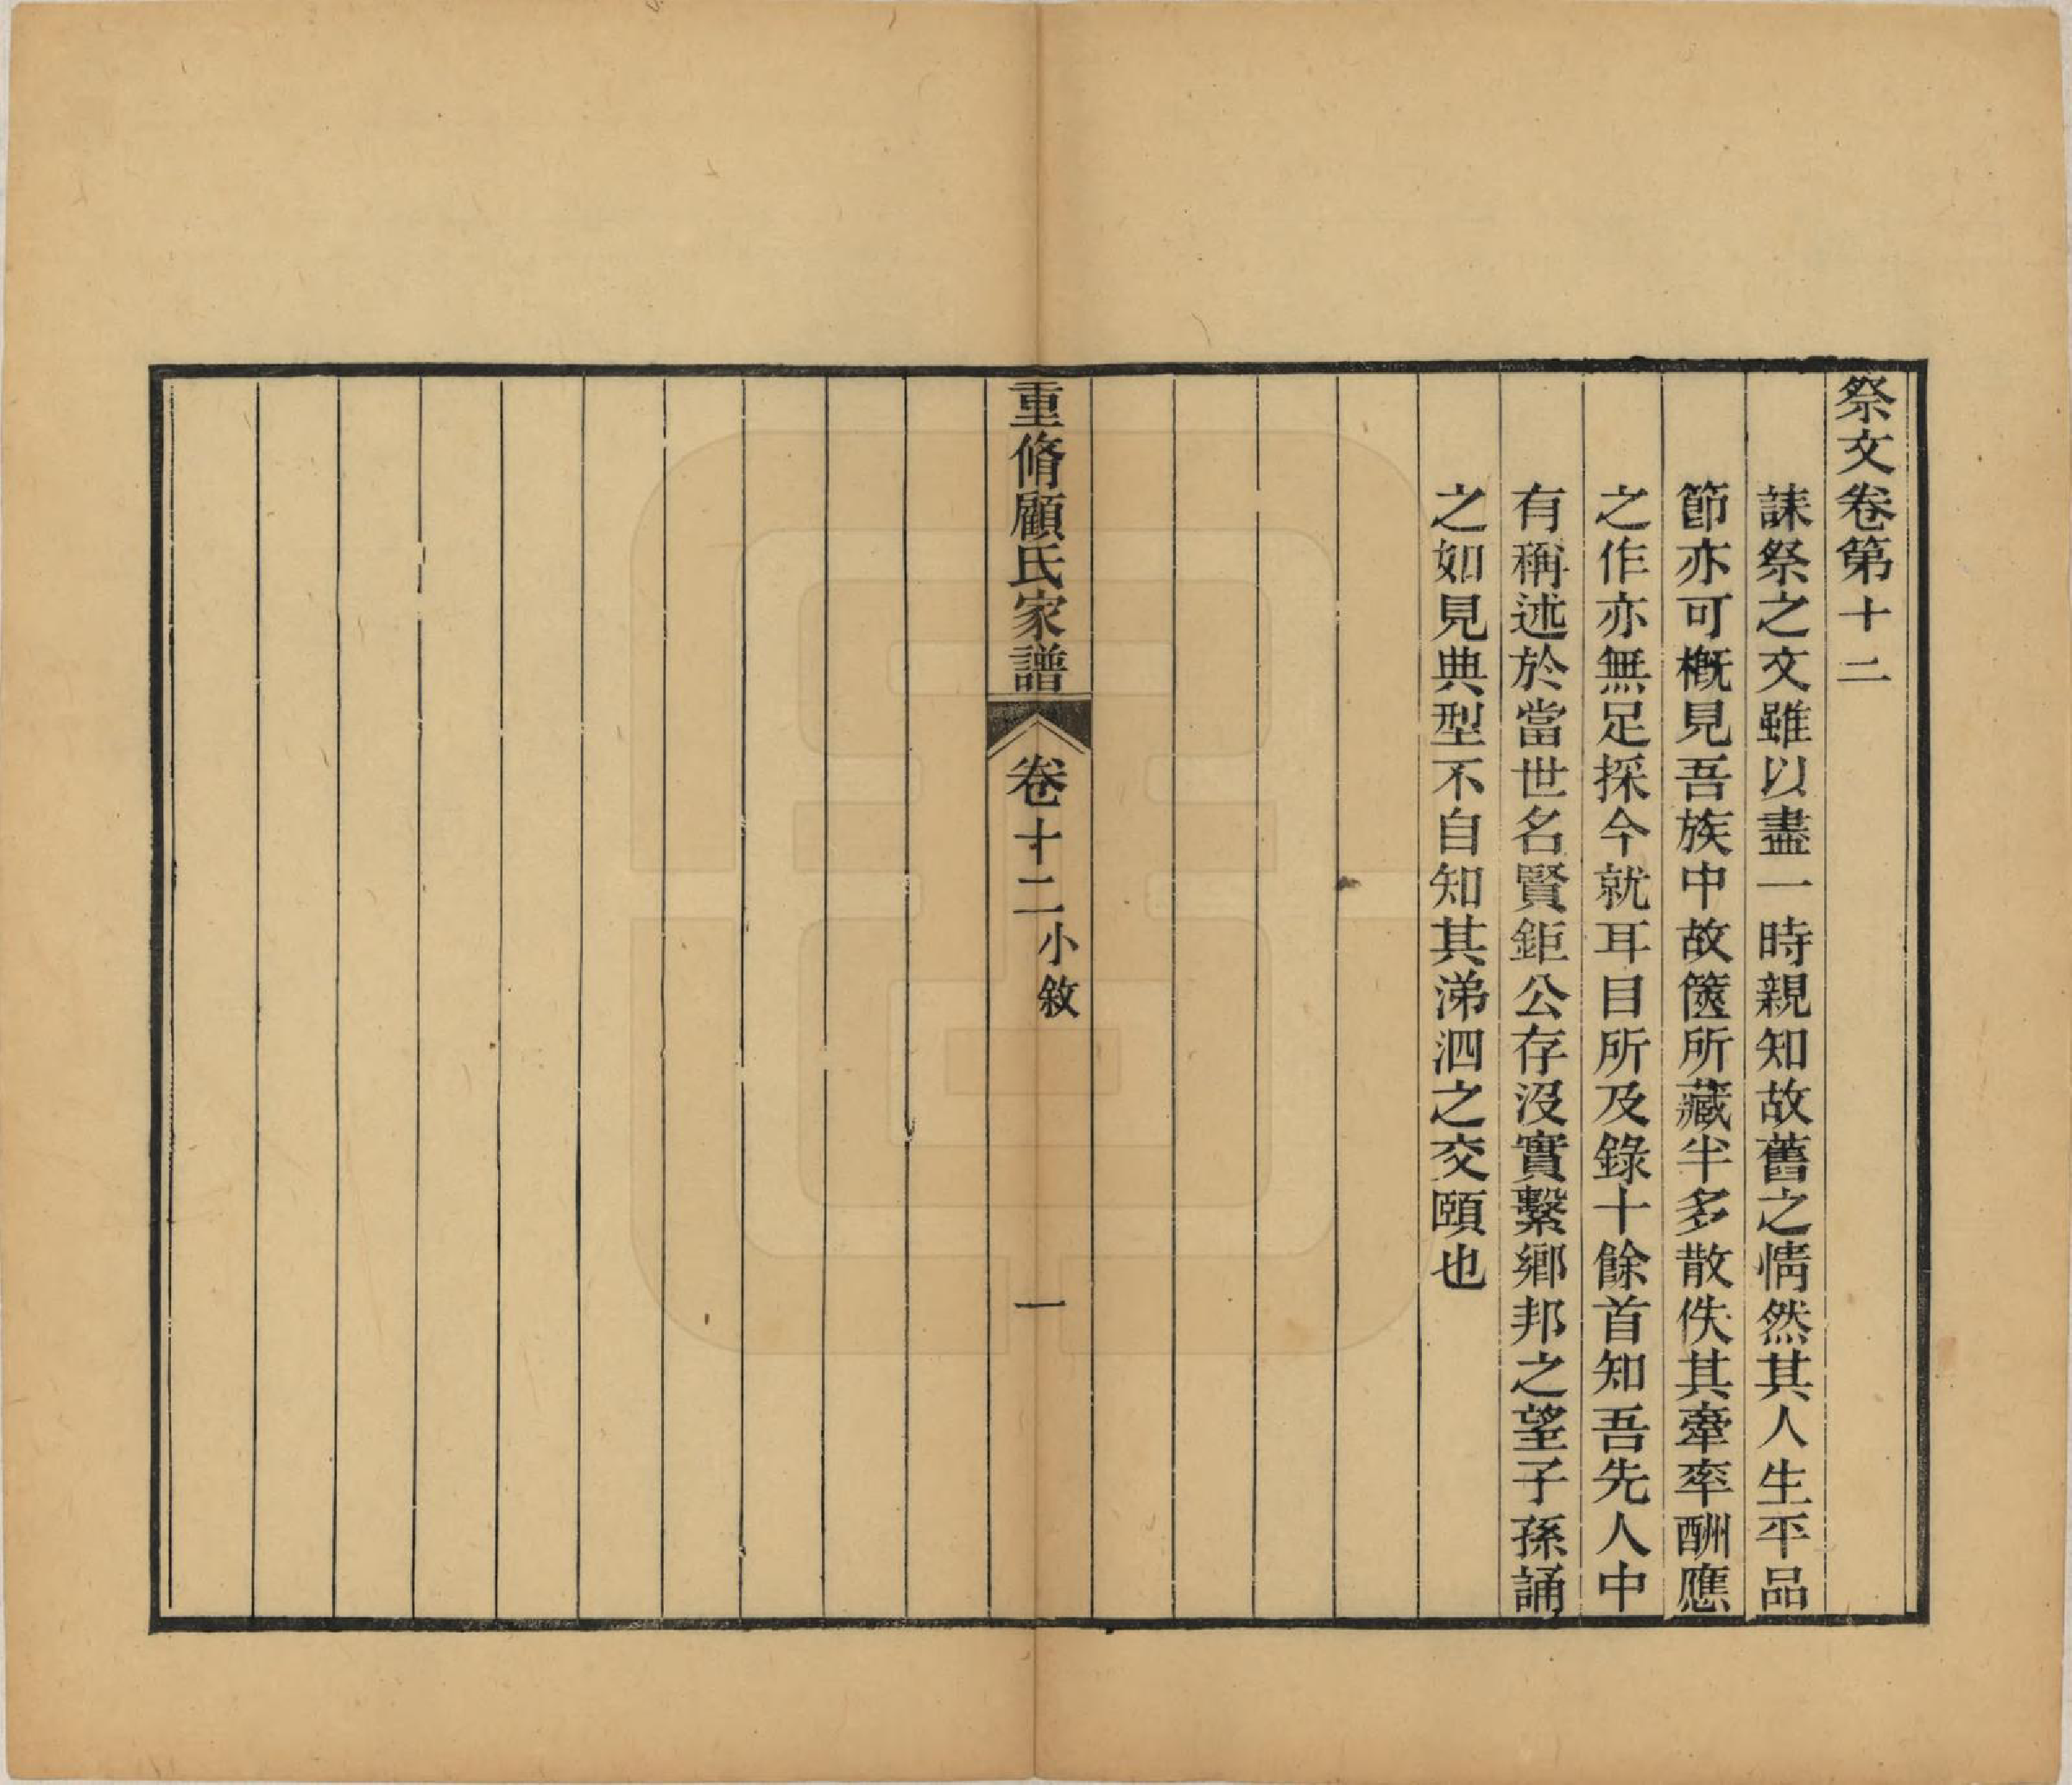 祭文卷第十二
誄祭之文雖以盡一時親知故舊之情然其人生平品
節亦可槪見吾族中故篋所藏半多散佚其牽率酬應
之作亦無足採今就耳目所及錄十餘首知吾先人中
有稱述於當世名賢鉅公存没實繫鄉邦之望子孫誦
之如見典型不自知其涕泗之交頤也
重脩顧氏家譜
卷十二
小敘
一